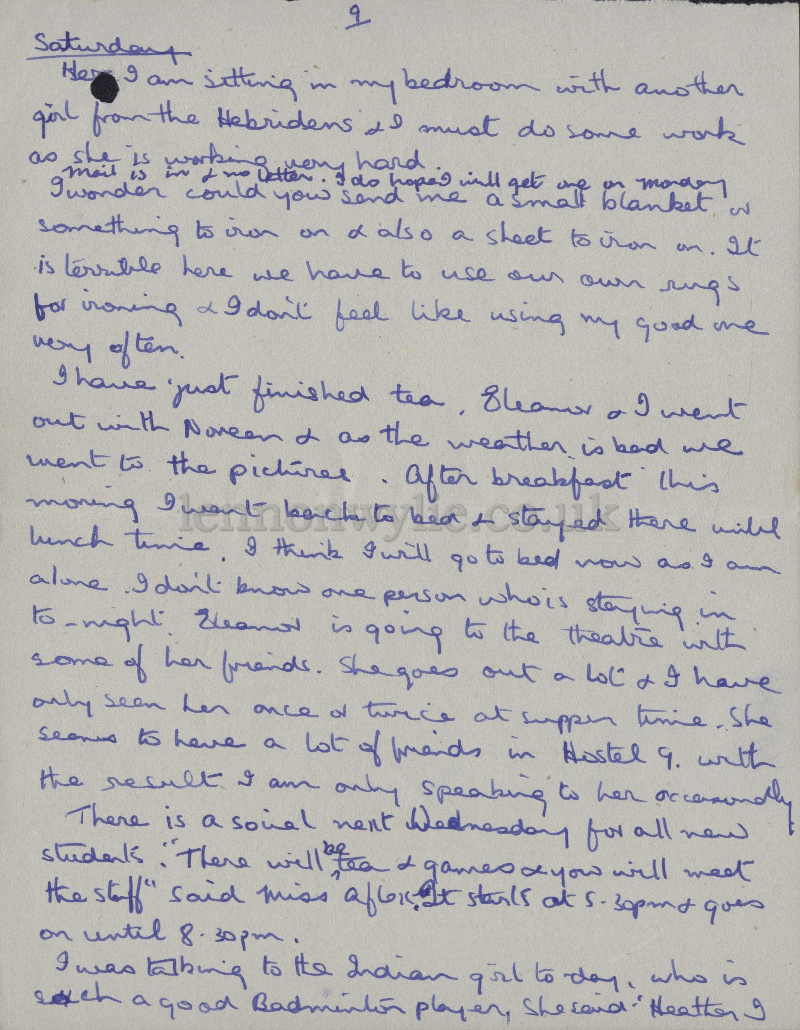 9
Saturday
Here I am sitting in my bedroom with another
girl from the Hebridens & I must do some work
as she is working very hard.
Mail is in & no letter. I do hope I will get one on Monday
I wonder could you send me a small blanket or
something to iron on & also a sheet to iron on. It
is terrible here we have to use our own rugs
for ironing & I don't feel like using my good one
very often.
I have just finished tea. Eleanor & I went
out with Noreen & as the weather is bad we
went to the pictures. After breakfast this
moring I went back to bed & stayed there until
lunch time. I think I will go to bed now as I am
alone. I don't know one person who is staying in
to-night. Eleanor is going to the theatre with
some of her friends. She goes out a lot & I have
only seen her once or twice at supper time. She
seems to have a lot of friends in Hostel 9. with
the result I am only speaking to her occasionally
There is a social next Wednesday for all new
students. "There will be tea & games & you will meet
the staff" said Miss It starts at 5.30pm & goes
on until 8.30pm.
I was talking to the Indian girl to-day, who is
such a good Badminton player, She said "Heather I
lennonwylie.co.uk